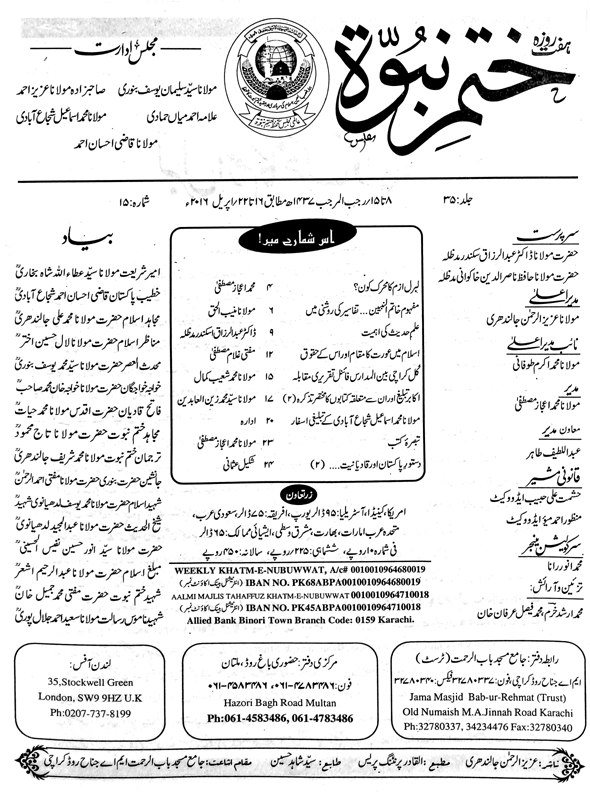 ہفت روزہ
ختم نبوۃ
مجلس ادارت
مولانا سیّد سلیمان یوسف بنوری صاحبزادہ مولانا عزیز احمد
علامہ احمد میاں حمادی مولانا محمد اسماعیل شجاع آبادی
مولانا قاضی احسان احمد
جلد: ۳۵ ۸ تا ۱۵ رجب المرجب ۱۴۳۷ھ مطابق ۱۶ تا ۲۲ اپریل ۲۰۱۶ء شمارہ: ۱۵
سرپرست
حضرت مولانا ڈاکٹر عبدالرزاق سکندر مدظلہ
حضرت مولانا حافظ ناصر الدین خاکوانی مدظلہ
مدیر اعلیٰ
مولانا عزیز الرحمٰن جالندھری
نائب مدیر اعلیٰ
مولانا محمد اکرم طوفانی
مدیر
مولانا محمد اعجاز مصطفیٰ
معاون مدیر
عبداللطیف طاہر
قانونی مشیر
حشمت علی حبیب ایڈووکیٹ
منظور احمد میؤ ایڈووکیٹ
سرکولیشن منیجر
محمد انور رانا
تزئین و آرائش:
محمد ارشد خرم، محمد فیصل عرفان خان
اس شمارے میں!
لبرل ازم کا محرک کون؟ ۴ محمد اعجاز مصطفیٰ
مفہوم خاتم النبیین... تفاسیر کی روشنی میں ۶ مولانا منیب الحق
علم حدیث کی اہمیت ۹ ڈاکٹر عبدالرزاق سکندر مدظلہ
اسلام میں عورت کا مقام اور اس کے حقوق ۱۲ مفتی غلام مصطفیٰ
گل کراچی بین المدارس فائنل تقریری مقابلہ ۱۵ مولانا محمد شعیب کمال
اکابر تبلیغ اور ان سے متعلقہ کتابوں کا مختصر تذکرہ (۲) ۱۷ مولانا سیّد محمد زین العابدین
مولانا محمد اسماعیل شجاع آبادی کے تبلیغی اسفار ۲۰ ادارہ
تبصرۂ کتب ۲۳ مولانا محمد اعجاز مصطفیٰ
دستور پاکستان اور قادیانیت.... (۲) ۲۴ شکیل عثمانی
زرتعاون
امریکا، کینیڈا، آسٹریلیا: ۹۵ ڈالر یورپ، افریقہ: ۷۵ ڈالر سعودی عرب،
متحدہ عرب امارات، بھارت، مشرق وسطیٰ، ایشیائی ممالک: ۶۵ ڈالر
فی شمارہ ۱۰ روپے، ششماہی: ۲۲۵ روپے، سالانہ: ۴۵۰ روپے
WEEKLY KHATM-E-NUBUWWAT, A/c# 0010010964680019
IBAN NO. PK68ABPA0010010964680019 (انٹرنیشنل بینک اکاؤنٹ نمبر)
AALMI MAJLIS TAHAFFUZ KHATM-E-NUBUWWAT 0010010964710018
IBAN NO. PK45ABPA0010010964710018 (انٹرنیشنل بینک اکاؤنٹ نمبر)
Allied Bank Binori Town Branch Code: 0159 Karachi.
بیاد
امیر شریعت مولانا سیّد عطاء اللہ شاہ بخاریؒ
خطیب پاکستان قاضی احسان احمد شجاع آبادیؒ
مجاہد اسلام حضرت مولانا محمد علی جالندھریؒ
مناظر اسلام حضرت مولانا لال حسین اخترؒ
محدث العصر حضرت مولانا سیّد محمد یوسف بنوریؒ
خواجہ خواجگان حضرت مولانا خواجہ خان محمد صاحبؒ
فاتح قادیان حضرت اقدس مولانا محمد حیاتؒ
مجاہد ختم نبوت حضرت مولانا تاج محمودؒ
ترجمان ختم نبوت مولانا محمد شریف جالندھریؒ
جانشین حضرت بنوری حضرت مولانا مفتی احمد الرحمٰنؒ
شہید اسلام حضرت مولانا محمد یوسف لدھیانوی شہیدؒ
شیخ الحدیث حضرت مولانا عبدالمجید لدھیانویؒ
حضرت مولانا سیّد انور حسین نفیس الحسینیؒ
مبلغ اسلام حضرت مولانا عبدالرحیم اشعرؒ
شہید ختم نبوت حضرت مفتی محمد جمیل خانؒ
شہید ناموس رسالت مولانا سعید احمد جلال پوریؒ
رابطہ دفتر: جامع مسجد باب الرحمت (ٹرسٹ)
ایم اے جناح روڈ کراچی فون: ۳۲۷۸۰۳۳۷ فیکس: ۳۲۷۸۰۳۴۰
Jama Masjid Bab-ur-Rehmat (Trust)
Old Numaish M.A.Jinnah Road Karachi
Ph:32780337, 34234476 Fax:32780340
مرکزی دفتر: حضوری باغ روڈ، ملتان
فون: ۰۶۱-۴۷۸۳۴۸۶، ۰۶۱-۴۵۸۳۴۸۶
Hazori Bagh Road Multan
Ph:061-4583486, 061-4783486
لندن آفس:
35, Stockwell Green
London, SW9 9HZ U.K
Ph:0207-737-8199
ناشر: عزیز الرحمٰن جالندھری مطبع: القادر پرنٹنگ پریس طابع: سیّد شاہد حسین مقام اشاعت: جامع مسجد باب الرحمت ایم اے جناح روڈ کراچی